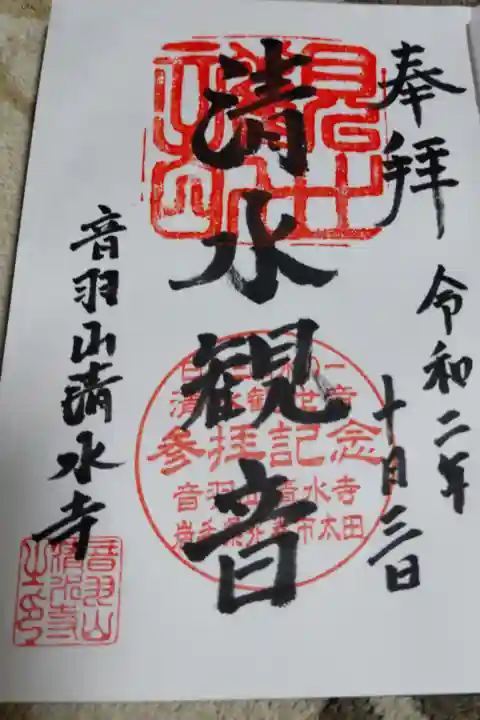 奉拝
令和二年
十月三日
清水観音
音羽山清水寺
参拝記念
音羽山清水寺
岩手県花巻市太田
音羽山
清水寺
之印